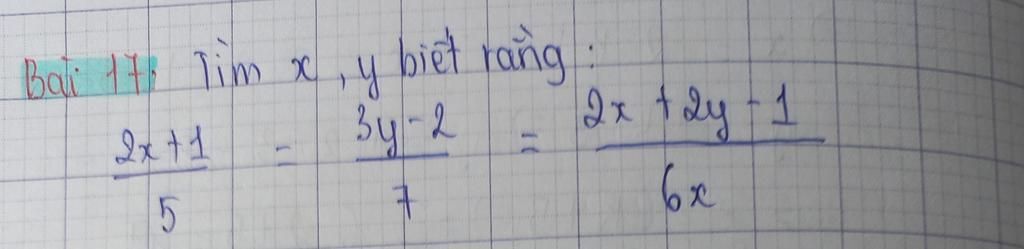 Bài 17: Tìm x, y biết rằng:
2x+1/5 = 3y-2/7 = 2x+2y-1/6x